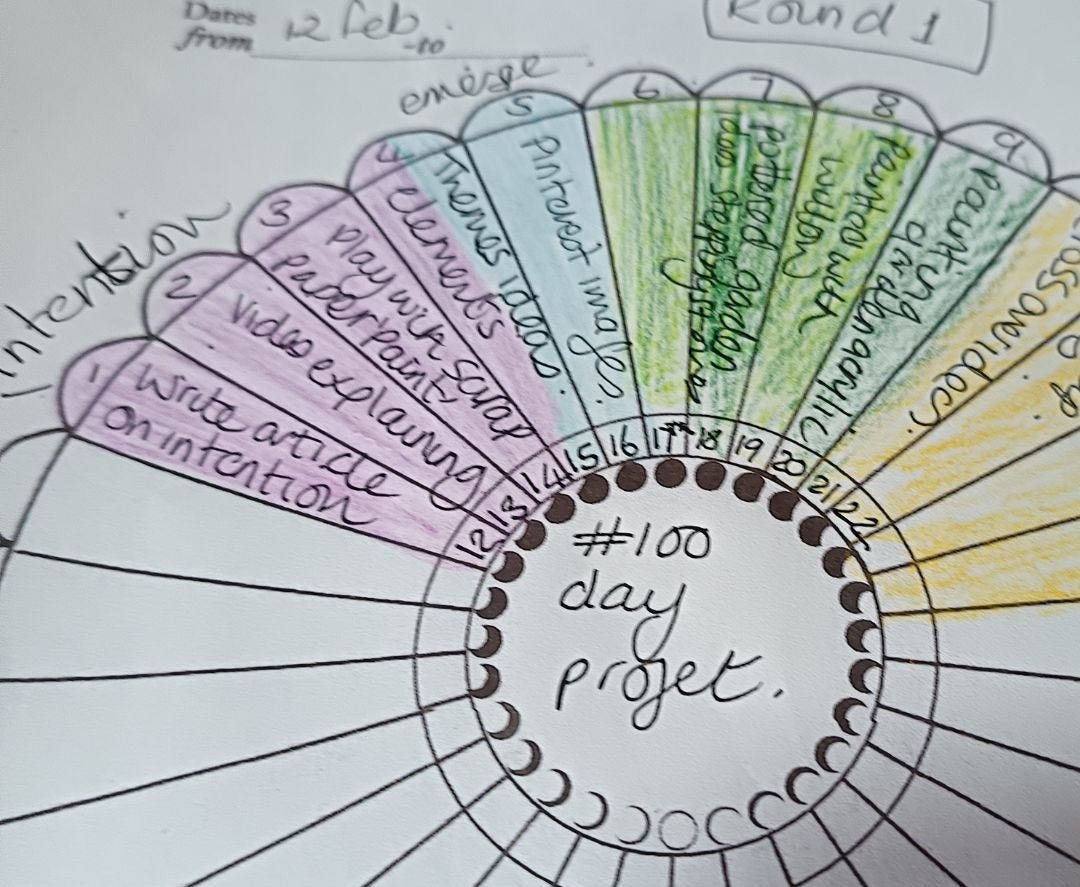 Dates
from 12 Feb -to
Round 1
intention
emerge
1
Write article
on intention
2
Video explaining
3
Play with scrap
paper/paint
4
elements
Themes ideas.
5
Pinterest images.
6
7
pottered garden
8
painted with
9
painting
garden acrylic
12
13
14
15
16
17th
18
19
20
21
22
#100
day
projet.